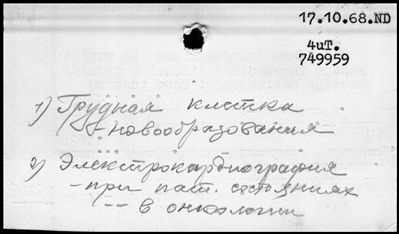 17.10.68.ND
4иТ.
749959
1) Грудная клетка
- новообразования
2) Электрокардиография
- при пат. состояниях
-- в онкологии